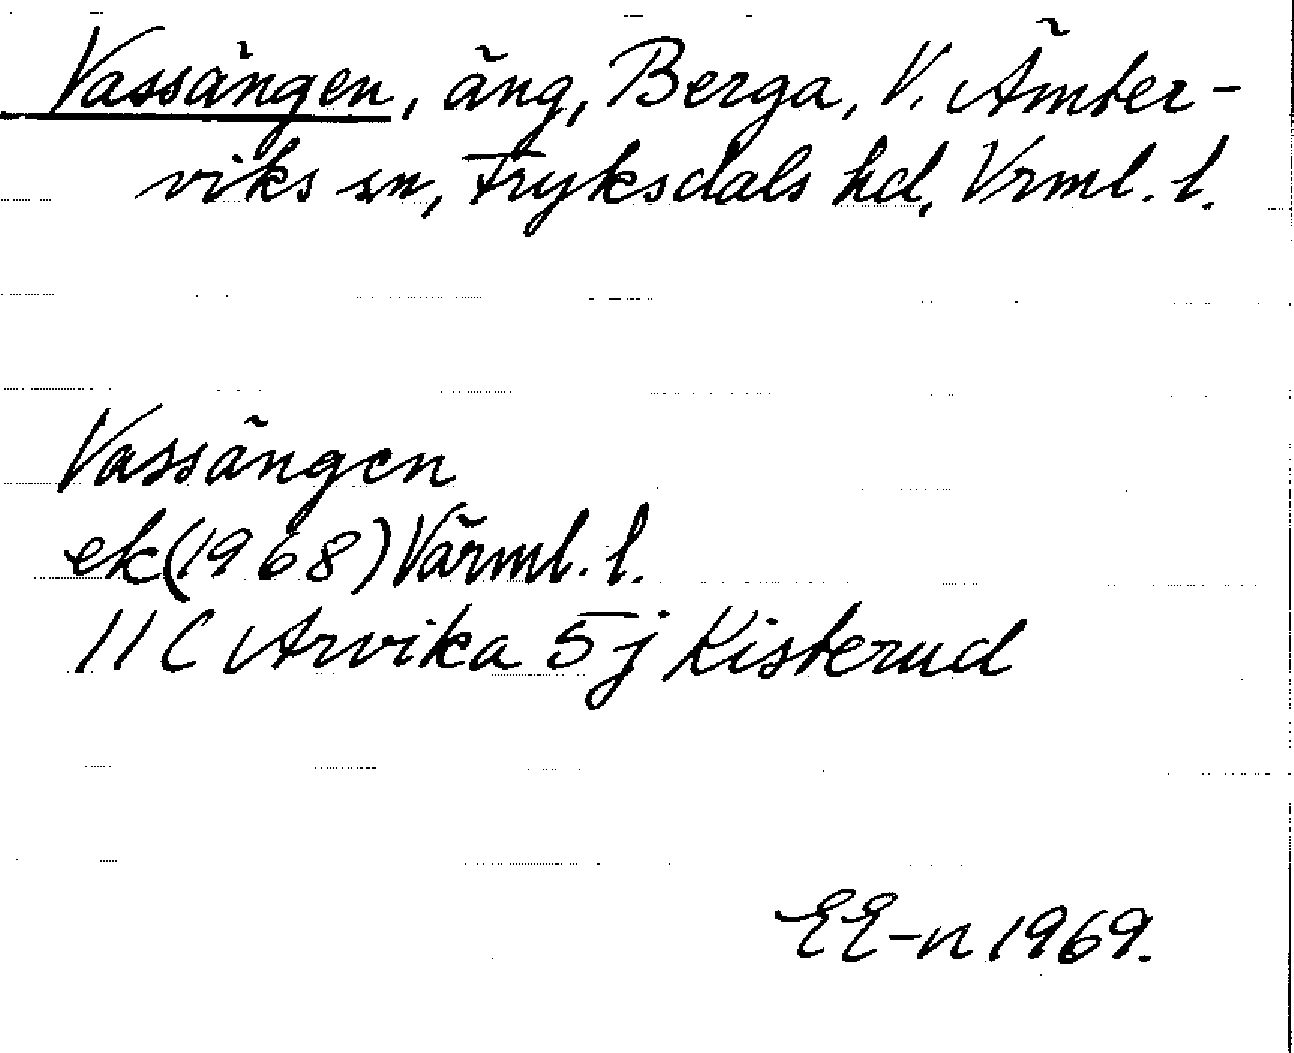 Vassängen, äng, Berga, V. Ämter-
viks sn, Fryksdals hd, Vrml. l.
Vassängen
ek (1968) Värml. l.
11 C Arvika 5j Kisterud
EE-n 1969.